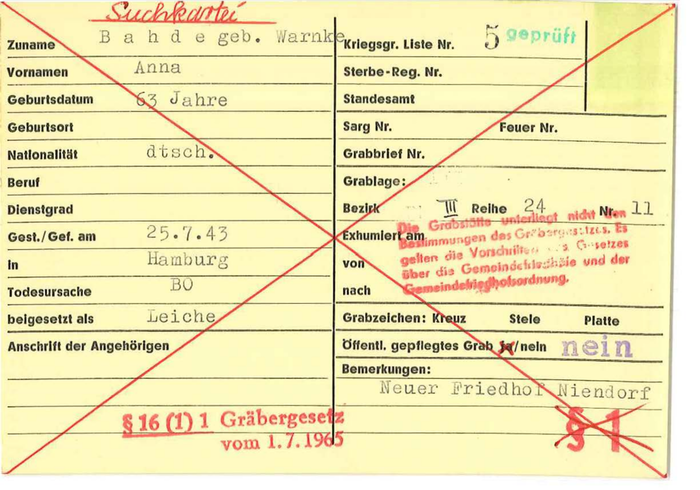 Suchkartei
Zuname B a h d e geb. Warnke
Vornamen Anna
Geburtsdatum 63 Jahre
Geburtsort
Nationalität dtsch.
Beruf
Dienstgrad
Gest./Gef. am 25.7.43
In Hamburg
Todesursache BO
beigesetzt als Leiche
Anschrift der Angehörigen
§ 16 (1) 1 Gräbergesetz
vom 1.7.1965
Kriegsgr. Liste Nr. 5 geprüft
Sterbe-Reg. Nr.
Standesamt
Sarg Nr. Feuer Nr.
Grabbrief Nr.
Grablage:
Bezirk III Reihe 24 Nr. 11
Exhumiert am
von
nach
Die Grabstätte unterliegt nicht den
Bestimmungen des Gräbergesetzes. Es
gelten die Vorschriften des Gesetzes
über die Gemeindefriedhöfe und der
Gemeindefriedhofsordnung.
Grabzeichen: Kreuz Stele Platte
Öffentl. gepflegtes Grab ja/nein nein
Bemerkungen:
Neuer Friedhof Niendorf
§ 1